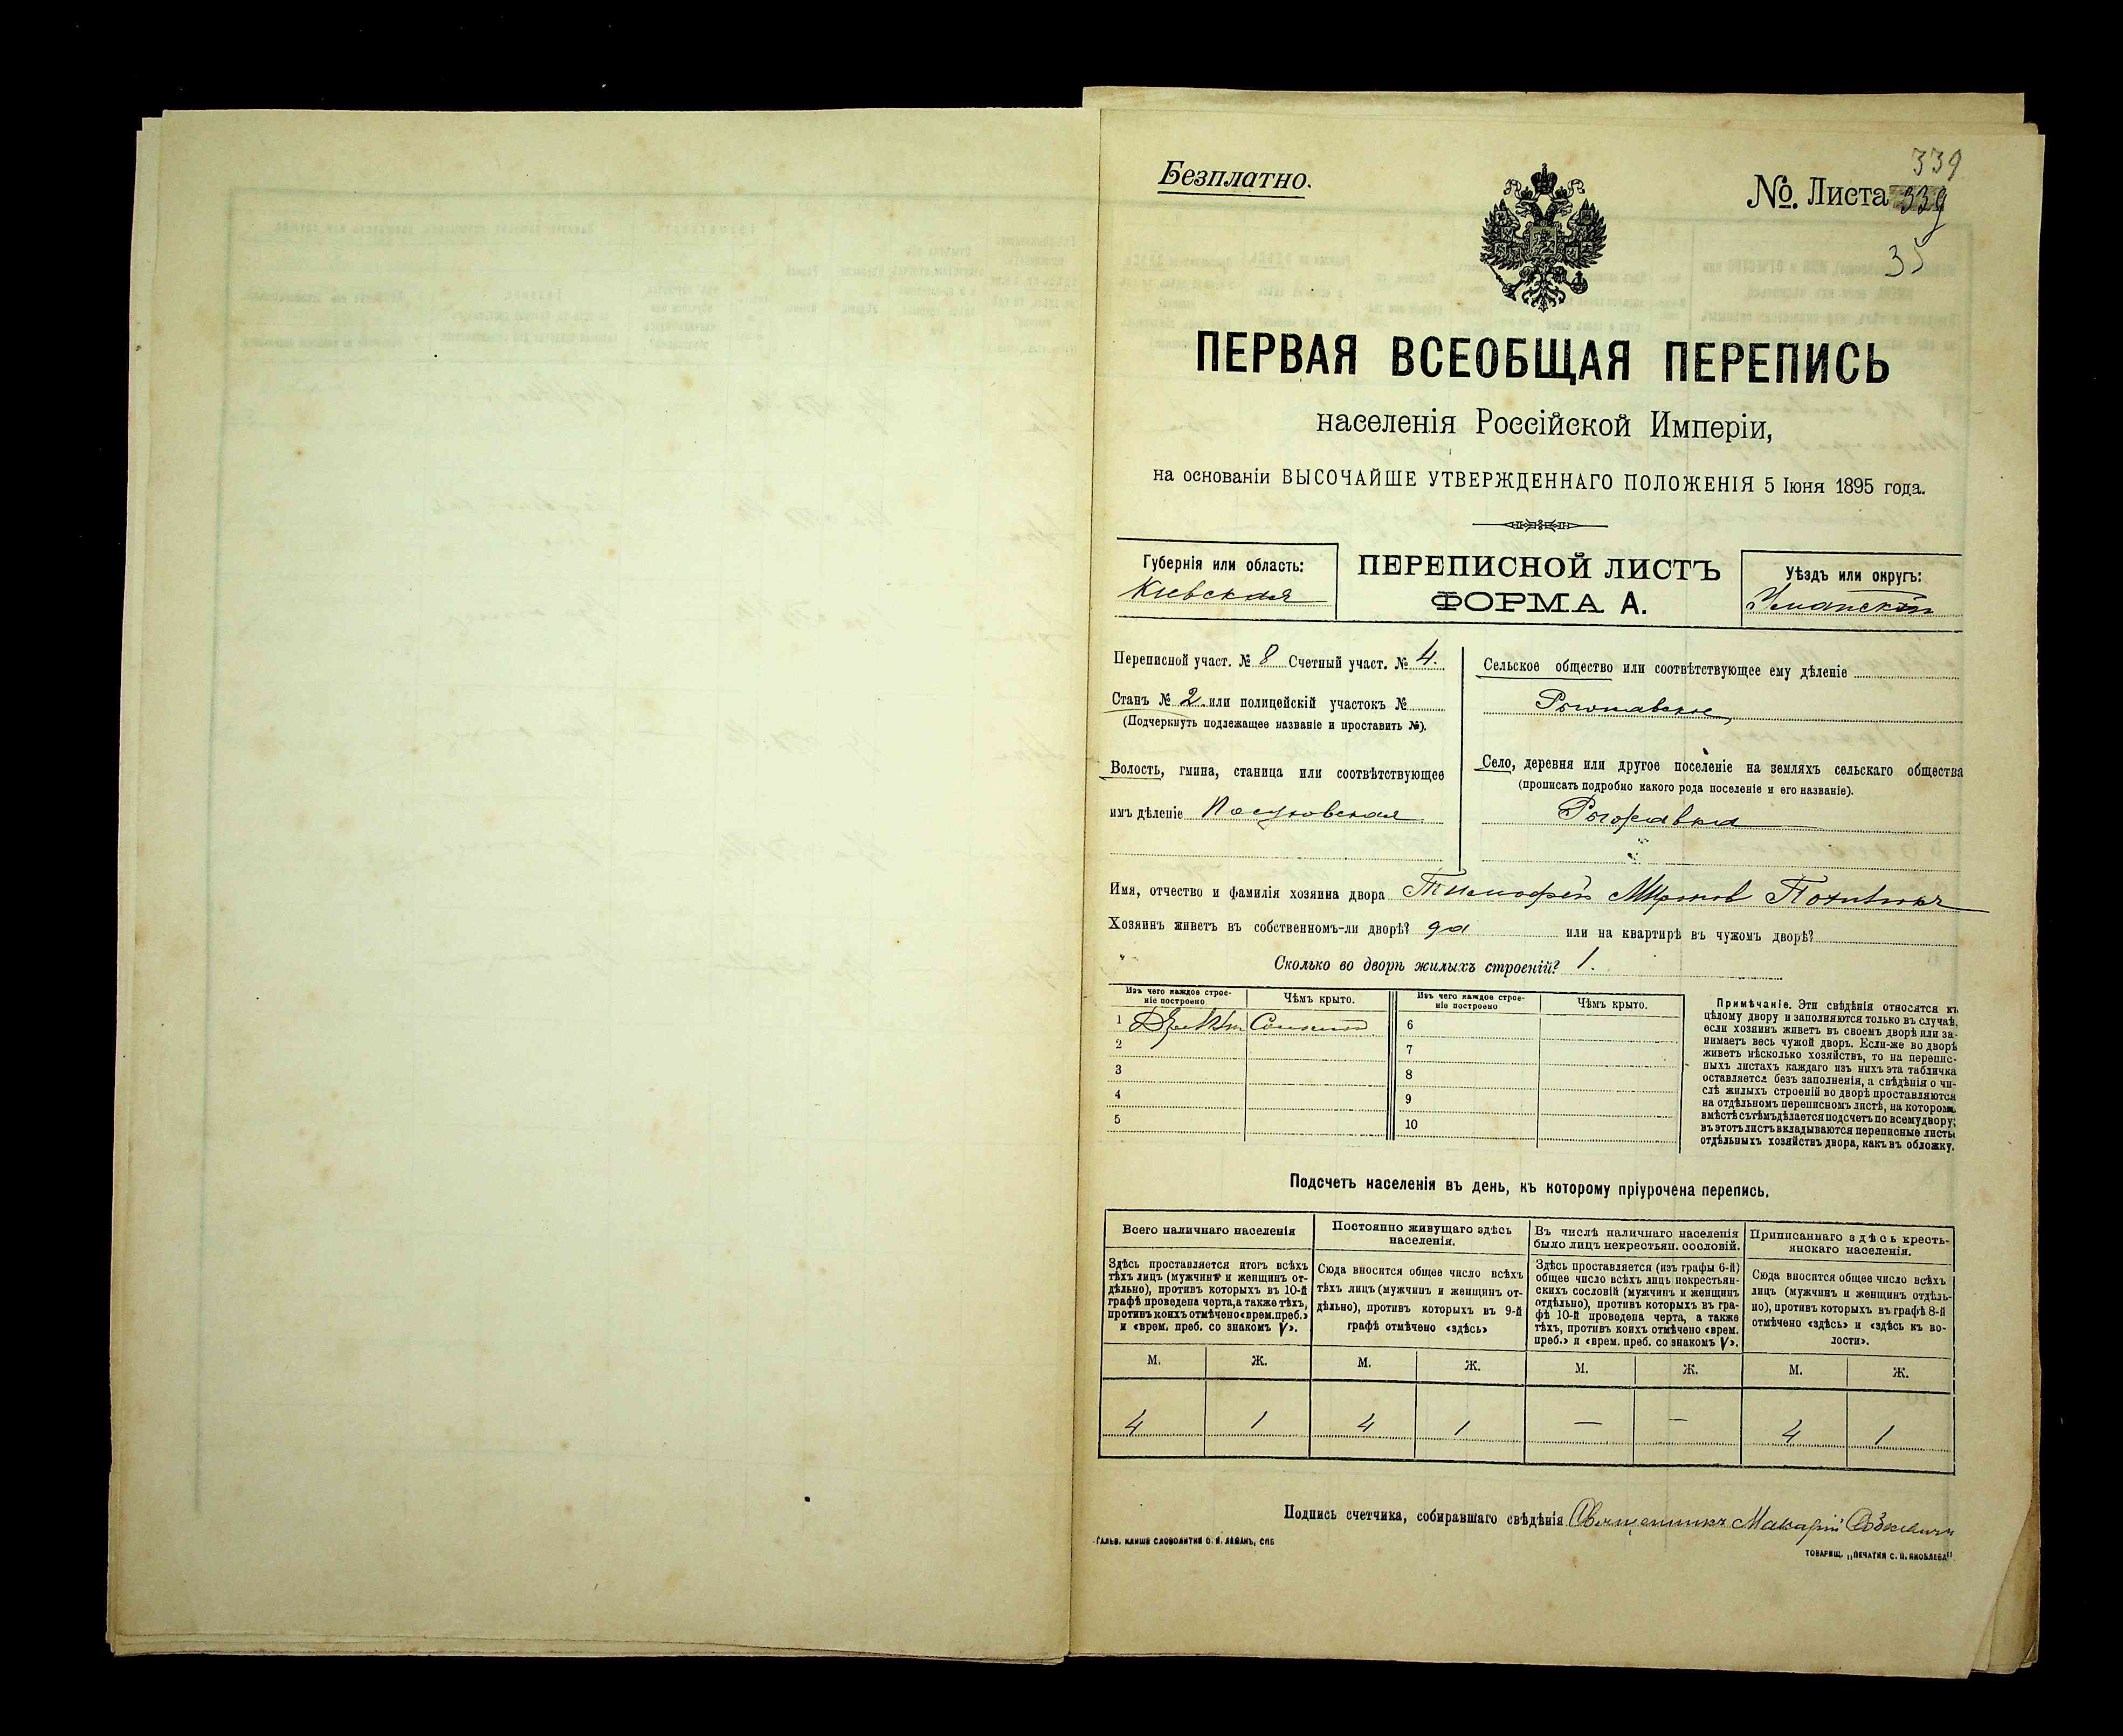 Безплатно.
339
№. Листа 339
35
ПЕРВАЯ ВСЕОБЩАЯ ПЕРЕПИСЬ
населенія Россійской Имперіи,
на основаніи ВЫСОЧАЙШЕ УТВЕРЖДЕННАГО ПОЛОЖЕНІЯ 5 Іюня 1895 года.
Губернія или область:
Кіевская
ПЕРЕПИСНОЙ ЛИСТЪ
ФОРМА А.
Уѣздъ или округъ:
Уманскій
Переписной участ. № 8 Счетный участ. № 4.
Станъ № 2 или полицейскій участокъ №
(Подчеркнуть подлежащее названіе и проставить №).
Волость, гмина, станица или соотвѣтствующее
имъ дѣленіе
Сельское общество или соотвѣтствующее ему дѣленіе
Село, деревня или другое поселеніе на земляхъ сельскаго общества
(прописать подробно какого рода поселеніе и его названіе).
Рыжавка
Имя, отчество и фамилія хозяина двора Тимофей Миронов
Хозяинъ живетъ въ собственномъ-ли дворѣ? да или на квартирѣ въ чужомъ дворѣ?
Сколько во дворѣ жилыхъ строеній? 1.
Изъ чего каждое строе-
ніе построено
Чѣмъ крыто.
Изъ чего каждое строе-
ніе построено
Чѣмъ крыто.
1
2
3
4
5
6
7
8
9
10
Примѣчаніе. Эти свѣдѣнія относятся къ
цѣлому двору и заполняются только въ случаѣ,
если хозяинъ живетъ въ своемъ дворѣ или за-
нимаетъ весь чужой дворъ. Если-же во дворѣ
живетъ нѣсколько хозяйствъ, то на перепис-
ныхъ листахъ каждаго изъ нихъ эта табличка
оставляется безъ заполненія, а свѣдѣнія о чи-
слѣ жилыхъ строеній во дворѣ проставляются
на отдѣльномъ переписномъ листѣ, на которомъ
вмѣстѣ съ тѣмъ дѣлается подсчетъ по всему двору;
въ этотъ листъ вкладываются переписные листы
отдѣльныхъ хозяйствъ двора, какъ въ обложку.
Подсчетъ населенія въ день, къ которому пріурочена перепись.
Всего наличнаго населенія
Здѣсь проставляется итогъ всѣхъ
тѣхъ лицъ (мужчинъ и женщинъ от-
дѣльно), противъ которыхъ въ 10-й
графѣ проведена черта, а также тѣхъ,
противъ коихъ отмѣчено «врем. преб.»
и «врем. преб. со знакомъ V».
Постоянно живущаго здѣсь
населенія.
Сюда вносится общее число всѣхъ
тѣхъ лицъ (мужчинъ и женщинъ от-
дѣльно), противъ которыхъ въ 9-й
графѣ отмѣчено «здѣсь»
Въ числѣ наличнаго населенія
было лицъ некрестьян. сословій.
Здѣсь проставляется (изъ графы 6-й)
общее число всѣхъ лицъ некрестьян-
скихъ сословій (мужчинъ и женщинъ
отдѣльно), противъ которыхъ въ гра-
фѣ 10-й проведена черта, а также
тѣхъ, противъ коихъ отмѣчено «врем.
преб.» и «врем. преб. со знакомъ V».
Приписаннаго здѣсь кресть-
янскаго населенія.
Сюда вносится общее число всѣхъ
лицъ (мужчинъ и женщинъ отдѣль-
но), противъ которыхъ въ графѣ 8-й
отмѣчено «здѣсь» и «здѣсь къ во-
лости».
М. Ж. М. Ж. М. Ж. М. Ж.
4 1 4 1 — — 4 1
Подпись счетчика, собиравшаго свѣдѣнія Священникъ Макарій
ГАЛЬВ. КЛИШЕ СЛОВОЛИТНИ О. И. ЛЕМАНЪ, СПБ
ТОВАРИЩ. „ПЕЧАТНЯ С. П. ЯКОВЛЕВА"